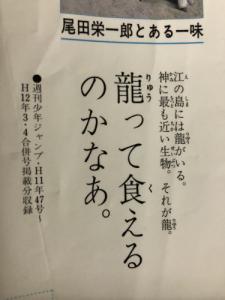 尾田栄一郎とある一味
江の島には龍がいる。
神に最も近い生物。それが龍。
龍って食える
のかなあ。
●週刊少年ジャンプ・H11年47号〜
H12年3・4合併号掲載分収録